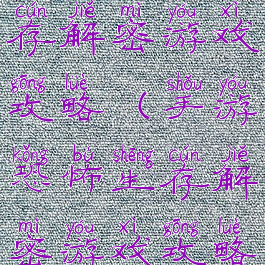 cún jiě mì yóu xì
存解密游戏
gōng lüè shǒu yóu
攻略（手游
kǒng bù shēng cún jiě
恐怖生存解
mì yóu xì gōng lüè
密游戏攻略